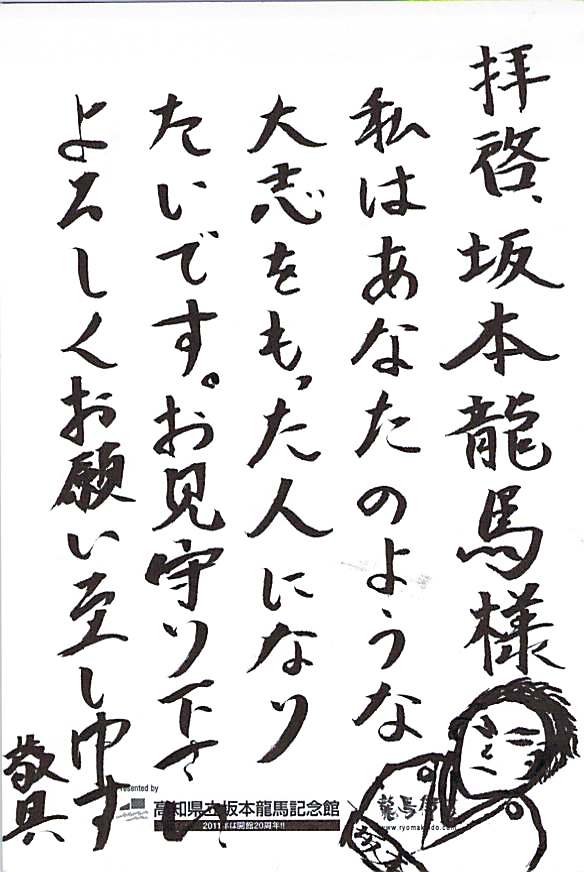 拝啓、坂本龍馬様
私はあなたのような
大志をもった人になり
たいです。お見守り下さい
よろしくお願い至します
敬具
presented by
高知県立坂本龍馬記念館
2011年は開館20周年!!
www.ryomakaido.com
坂本